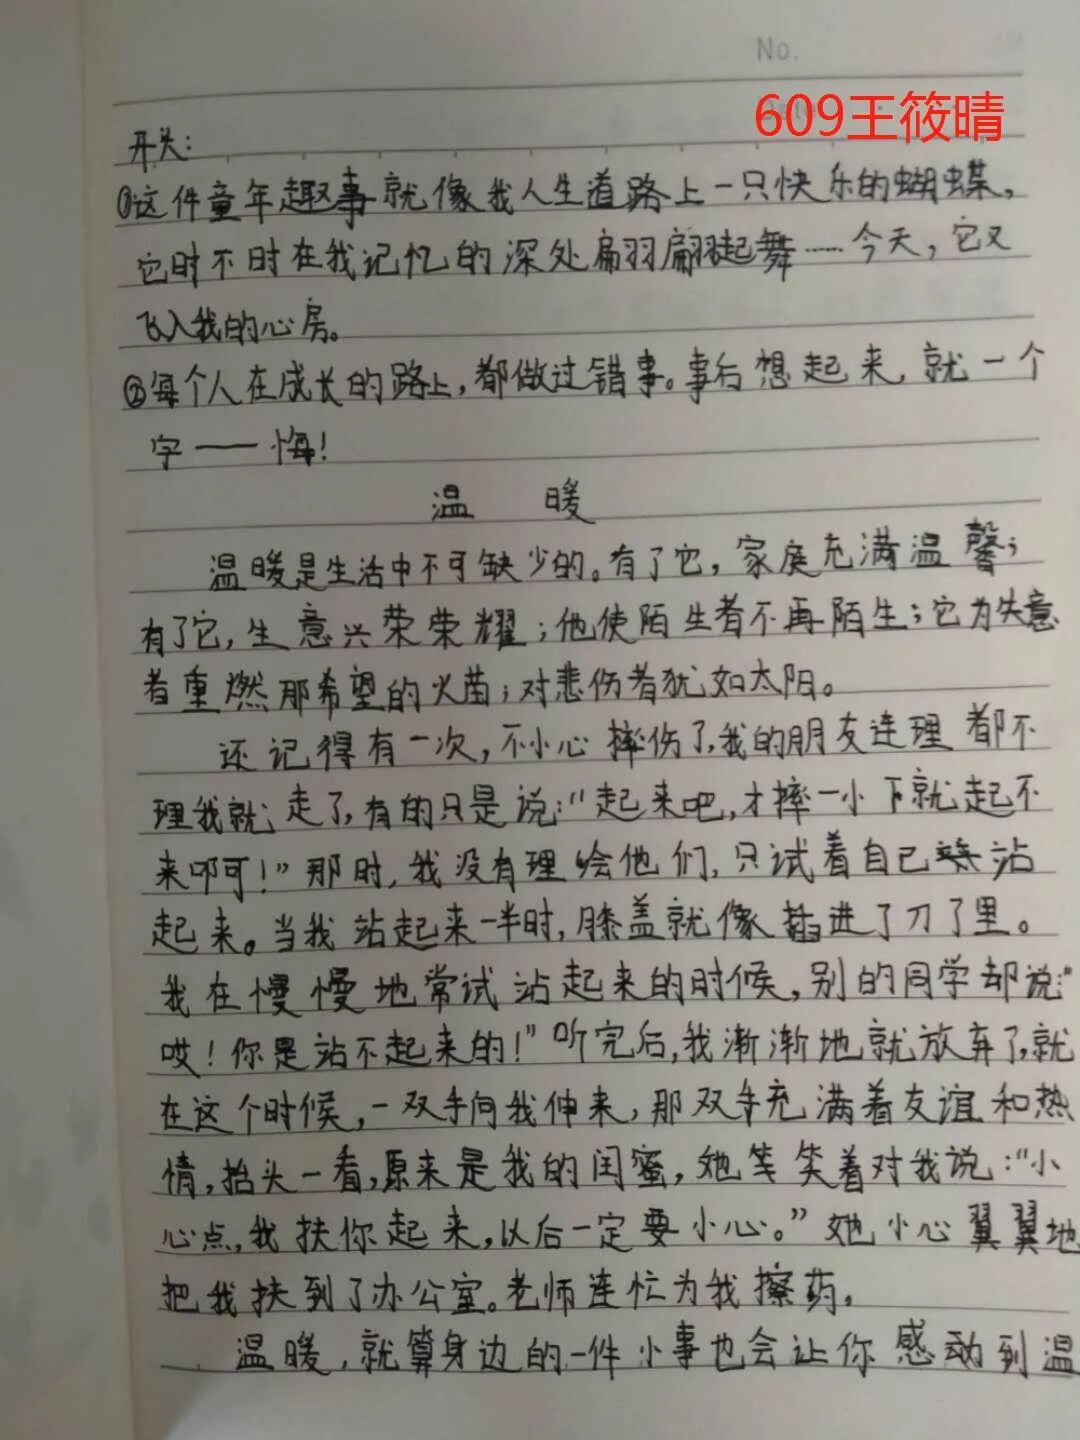 No.
609王筱晴
开头：
①这件童年趣事就像我人生道路上一只快乐的蝴蝶，
它时不时在我记忆的深处扁羽扁羽起舞……今天，它又
飞入我的心房。
②每个人在成长的路上，都做过错事。事后想起来，就一个
字——悔！
温暖
温暖是生活中不可缺少的。有了它，家庭充满温馨；
有了它，生意兴荣荣耀；他使陌生者不再陌生；它为失意
者重燃那希望的火苗；对悲伤者犹如太阳。
还记得有一次，不小心摔伤了，我的朋友连理都不
理我就走了，有的只是说：“起来吧，才摔一小下就起不
来叩可！”那时，我没有理给他们，只试着自己站
起来。当我站起来一半时，膝盖就像插进了刀了里。
我在慢慢地常试站起来的时候，别的同学却说：“
哎！你是站不起来的！”听完后，我渐渐地就放弃了，就
在这个时候，一双手向我伸来，那双手充满着友谊和热
情，抬头一看，原来是我的闺蜜，她笑笑着对我说：“小
心点，我扶你起来，以后一定要小心。”她小心翼翼地
把我扶到了办公室。老师连忙为我擦药。
温暖，就算身边的一件小事也会让你感动到温